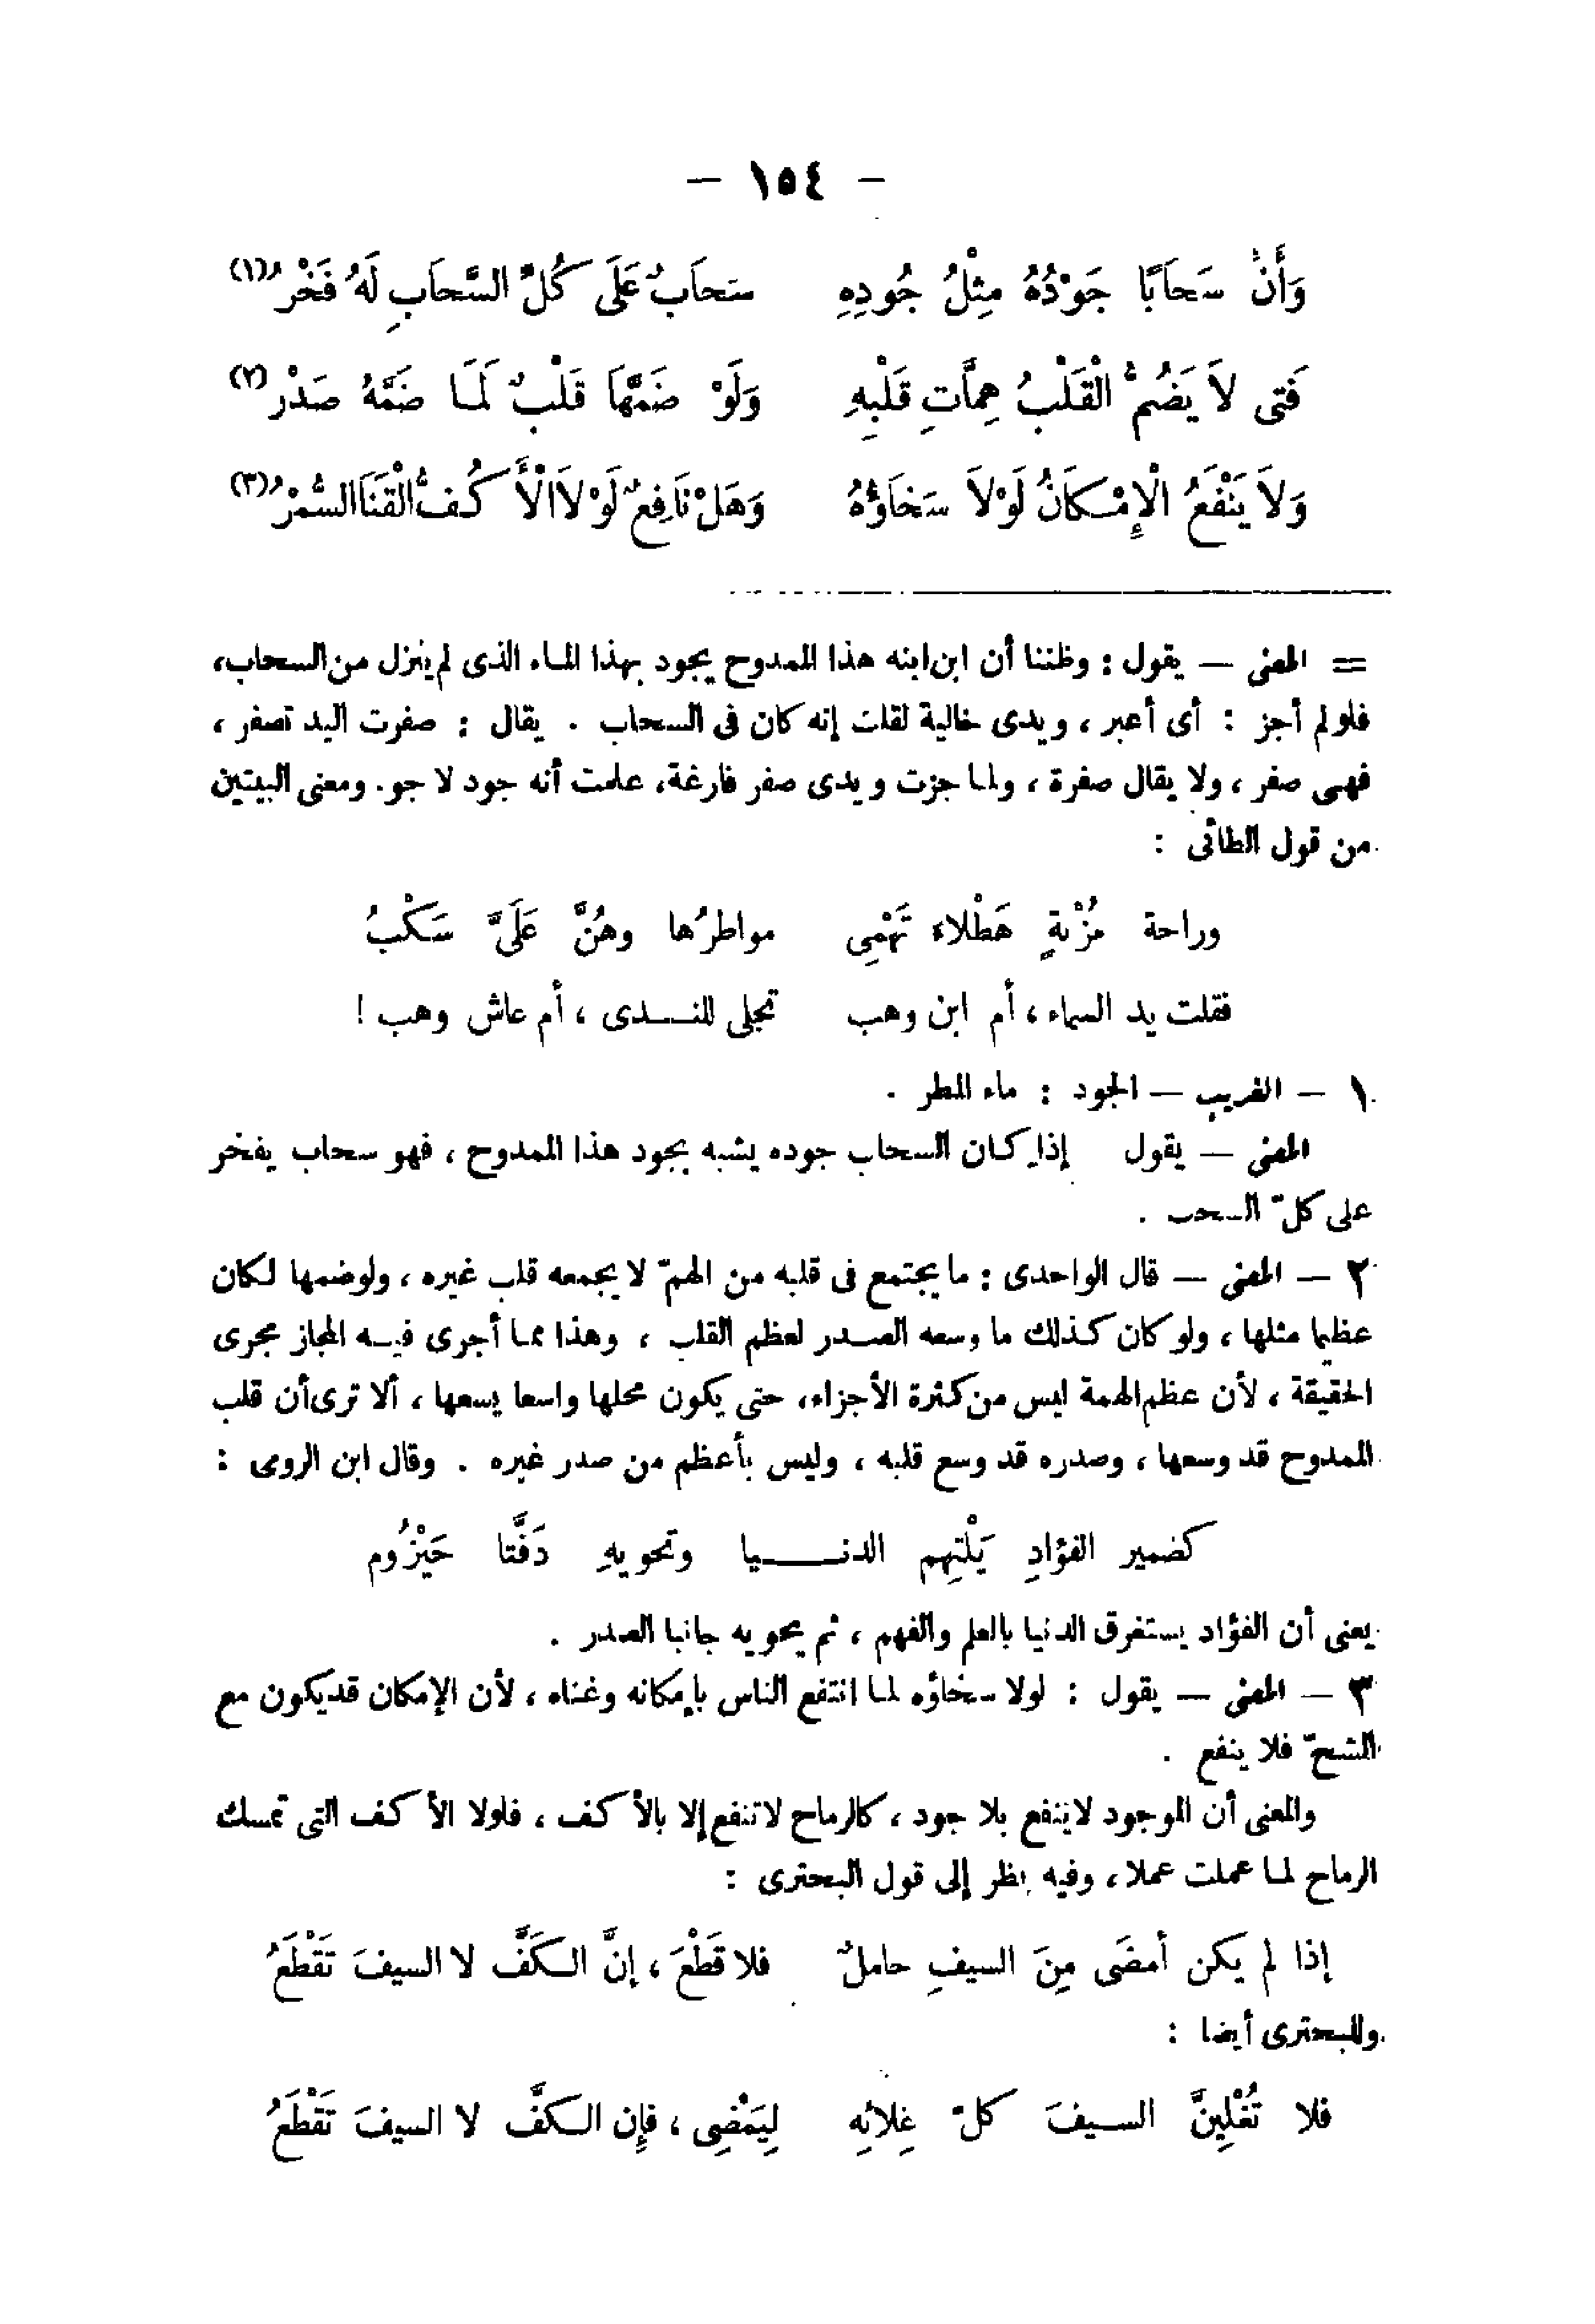 — ١٥٤ —
وَأَنَّ سَحَابًا جَوْدُهُ مِثْلُ جُودِهِ سَحَابٌ عَلَى كُلِّ السَّحَابِ لَهُ فَخْرُ (١)
فَتى لاَ يَضُمُّ الْقَلْبُ هِمَّاتِ قَلْبِهِ وَلَوْ ضَمَّهَا قَلْبٌ لَمَا ضَمَّهُ صَدْرُ (٢)
وَلاَ يَنْفَعُ الْإِمْكَانُ لَوْلاَ سَخَاؤُهُ وَهَلْ نَافِعٌ لَوْلاَ الْأَكُفُّ الْقَنَا السُّمْرُ (٣)
= المعنى — يقول : وظننا أن ابن ابنه هذا الممدوح يجود بهذا الماء الذى لم ينزل من السحاب،
فلو لم أجز : أى أعبر ، ويدى خالية لقلت إنه كان فى السحاب . يقال : صفرت اليد تصفر ،
فهى صفر ، ولا يقال صفرة ، ولما جزت ويدى صفر فارغة، علمت أنه جود لا جو. ومعنى البيتين
من قول الطائى :
وراحة مُزْنةٍ هَطْلاء تَهْمِى مواطرُها وهُنَّ عَلَىَّ سَكْبُ
فقلت يد السماء ، أم ابن وهب تجلى للندى ، أم عاش وهب !
١ — الغريب — الجود : ماء المطر .
المعنى — يقول إذا كان السحاب جوده يشبه بجود هذا الممدوح ، فهو سحاب يفخر
على كلّ السحب .
٢ — المعنى — قال الواحدى : ما يجتمع فى قلبه من الهمّ لا يجمعه قلب غيره ، ولو ضمها لكان
عظيما مثلها ، ولو كان كذلك ما وسعه الصدر لعظم القلب ، وهذا مما أجرى فيه المجاز مجرى
الحقيقة ، لأن عظم الهمة ليس من كثرة الأجزاء، حتى يكون محلها واسعا يسعها ، ألا ترى أن قلب
الممدوح قد وسعها ، وصدره قد وسع قلبه ، وليس بأعظم من صدر غيره . وقال ابن الرومى :
كضمير الفؤادِ يَلْتهِم الدنيا وتحويهِ دَفَّتا حَيْزُوم
يعنى أن الفؤاد يستغرق الدنيا بالعلم والفهم ، ثم يحويه جانبا الصدر .
٣ — المعنى — يقول : لولا سخاؤه لما انتفع الناس بإمكانه وغناه ، لأن الإمكان قد يكون مع
الشحّ فلا ينفع .
والمعنى أن الموجود لا ينفع بلا جود ، كالرماح لا تنفع إلا بالأكف ، فلولا الأكف التى تمسك
الرماح لما عملت عملا ، وفيه نظر إلى قول البحترى :
إذا لم يكن أمضَى مِنَ السيفِ حاملٌ فلا قَطْعَ ، إنَّ الكَفَّ لا السيفَ تَقْطَعُ
وللبحترى أيضا :
فلا تُغْلِينَّ السيفَ كلّ غِلائِه لِيَمْضِى ، فإن الكفَّ لا السيفَ تَقْطَعُ